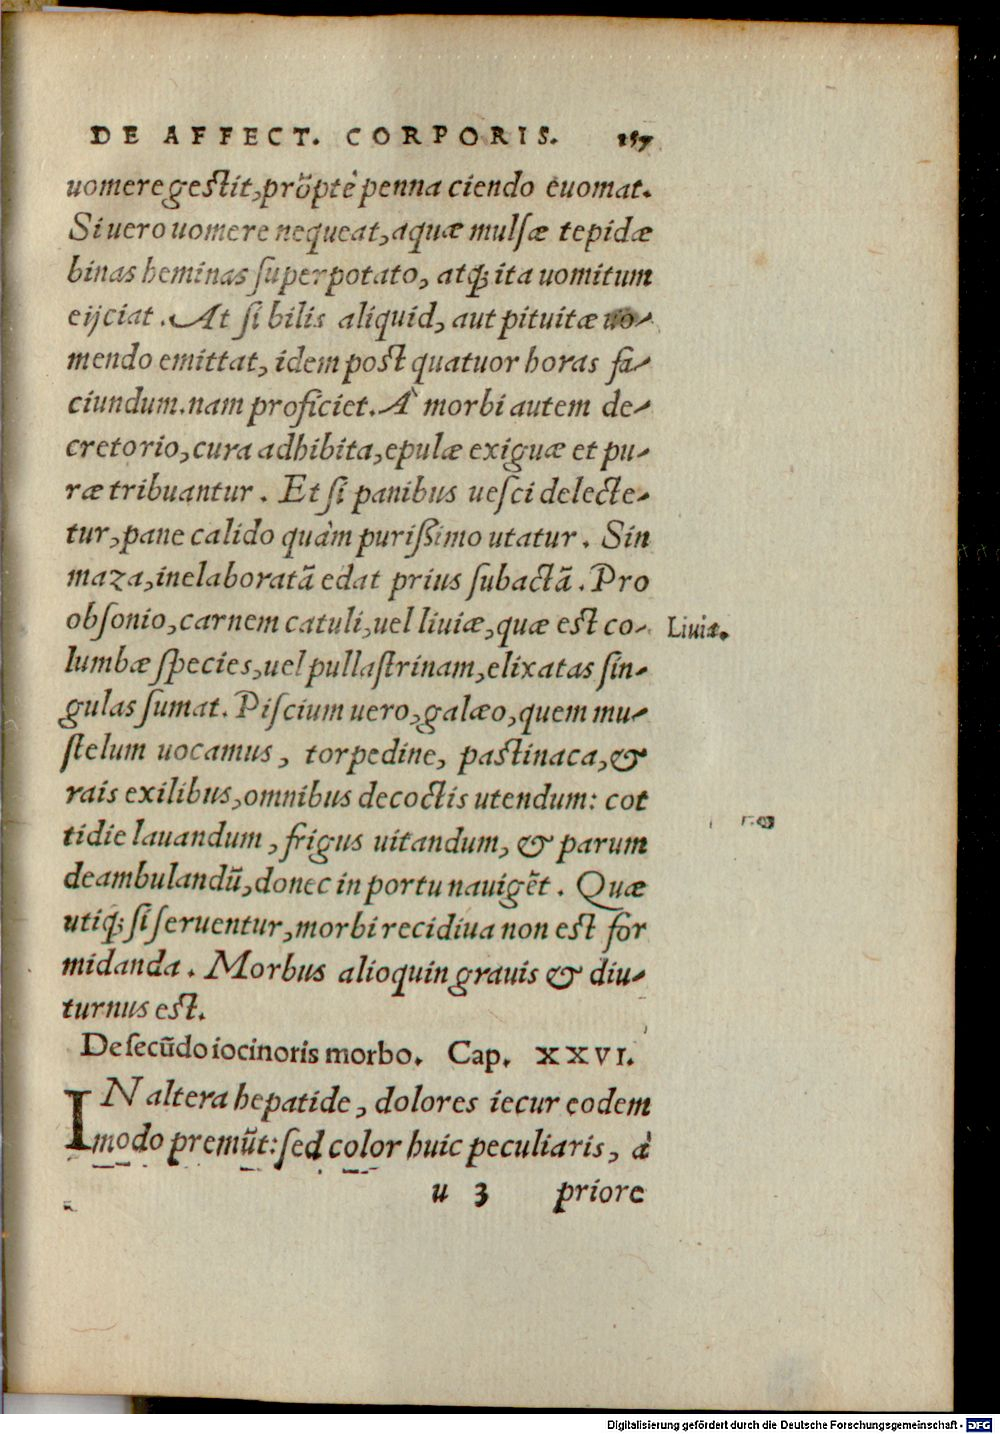 DE AFFECT. CORPORIS. 157
uomere gestit, prõptè penna ciendo euomat.
Si uero uomere nequeat, aquæ mulsæ tepidæ
binas heminas superpotato, atq; ita uomitum
eijciat. At si bilis aliquid, aut pituitæ uo-
mendo emittat, idem post quatuor horas fa-
ciundum. nam proficiet. À morbi autem de-
cretorio, cura adhibita, epulæ exiguæ et pu-
ræ tribuantur. Et si panibus uesci delecte-
tur, pane calido quàm purißimo utatur. Sin
maza, inelaboratã edat prius subactã. Pro
obsonio, carnem catuli, uel liuiæ, quæ est co-
Liuiæ.
lumbæ species, uel pullastrinam, elixatas sin-
gulas sumat. Piscium uero, galæo, quem mu-
stelum uocamus, torpedine, pastinaca, &
rais exilibus, omnibus decoctis utendum: cot
tidie lauandum, frigus uitandum, & parum
deambulandũ, donec in portu nauigẽt. Quæ
utiq; si seruentur, morbi recidiua non est for
midanda. Morbus alioquin grauis & diu-
turnus est.
De secũdo iocinoris morbo. Cap. XXVI.
IN altera hepatide, dolores iecur eodem
modo premũt: sed color huic peculiaris, à
u 3 priore
Digitalisierung gefördert durch die Deutsche Forschungsgemeinschaft - DFG